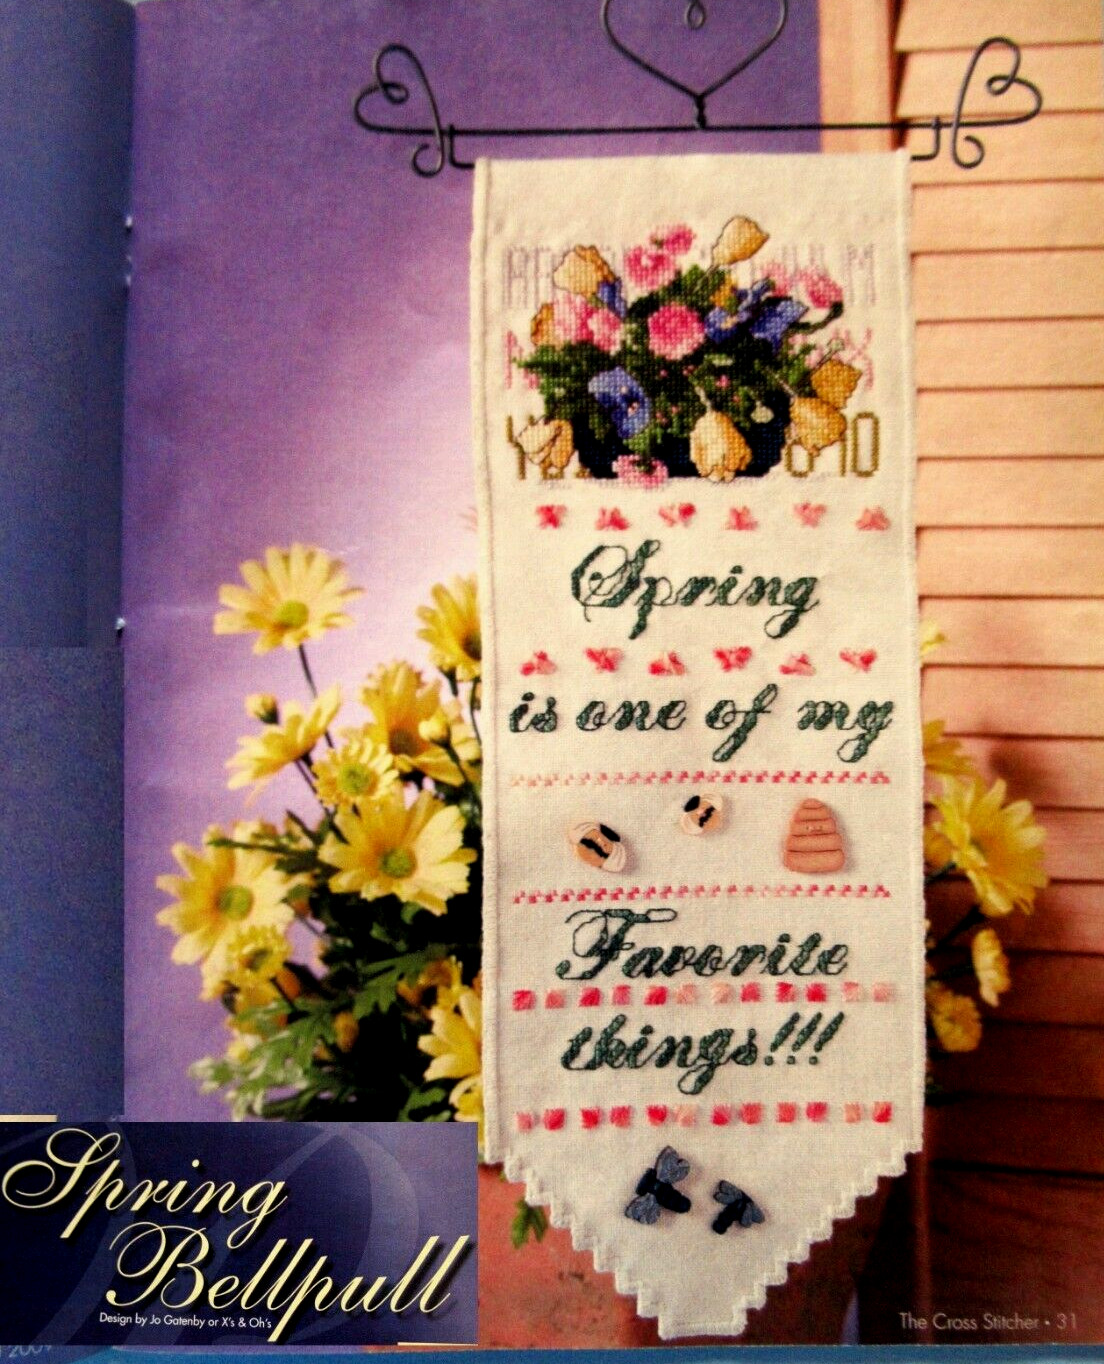 Spring
is one of my
Favorite
things!!!
Spring
Bellpull
Design by Jo Gatenby or X's & Oh's
The Cross Stitcher • 31